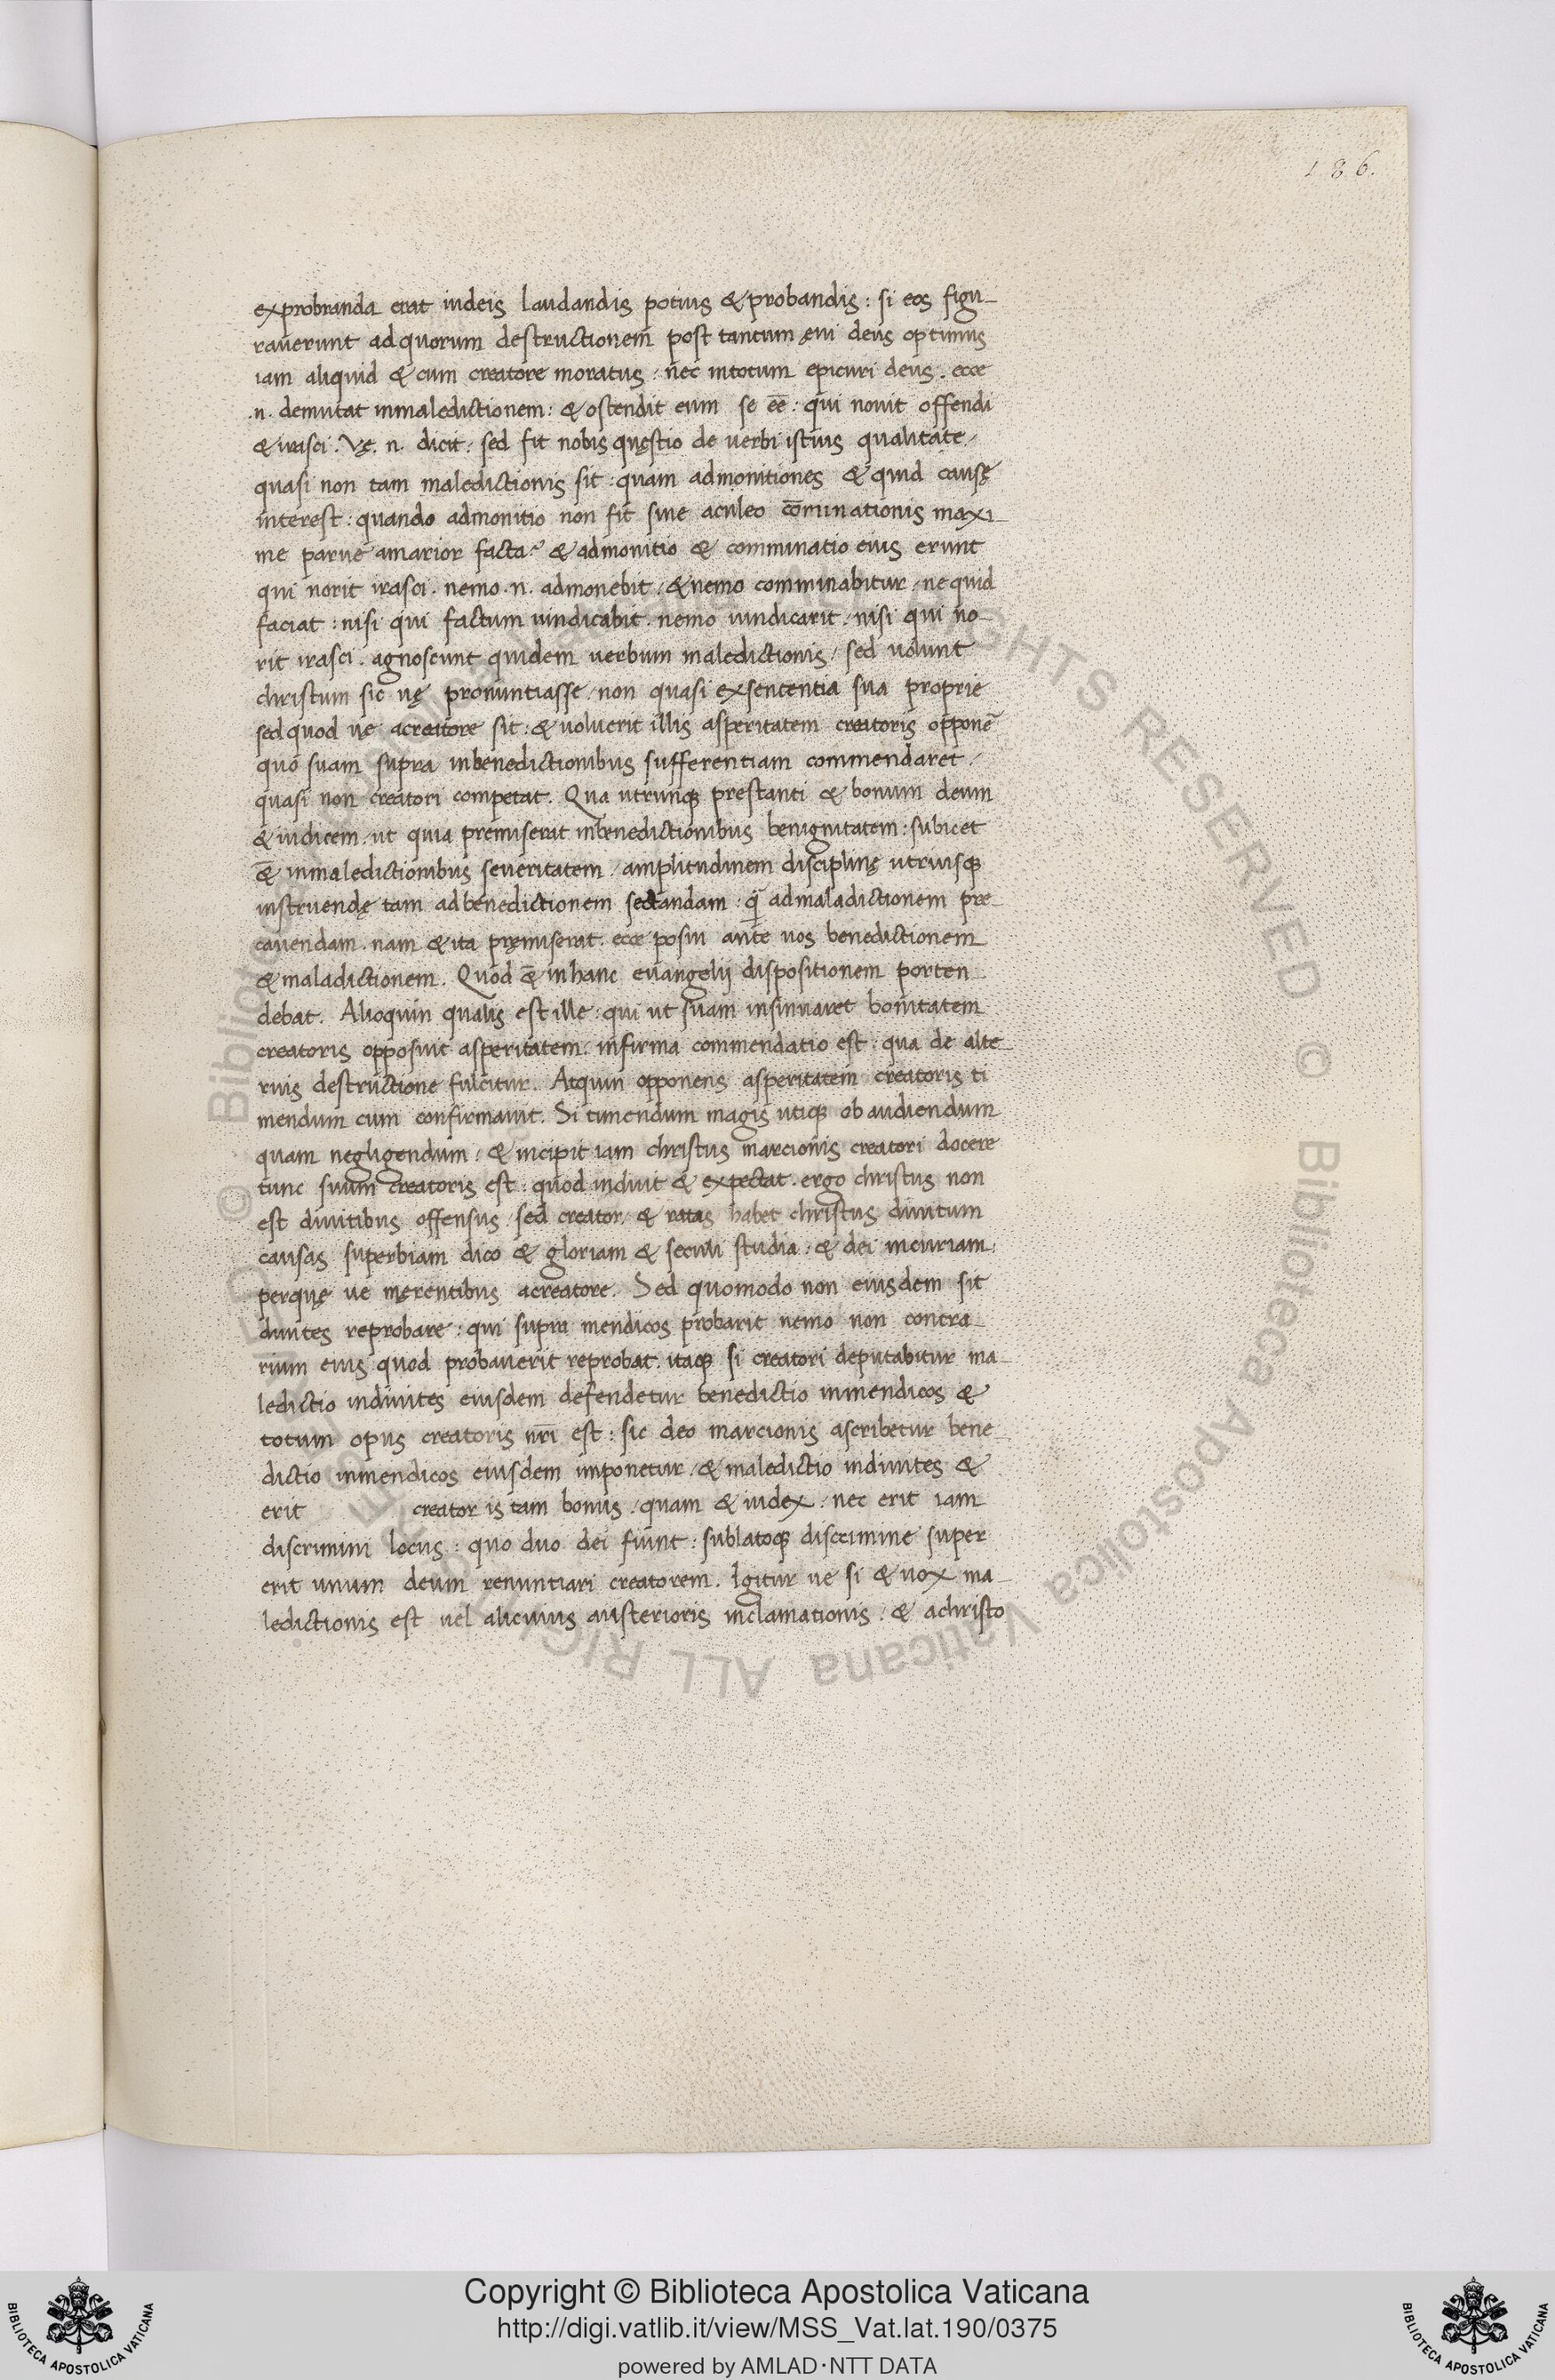 186.
exprobranda erat iudeis laudandis potius & probandis : si eos figu-
raverunt ad quorum destructionem post tantum ęvi deus optimus
iam aliquid & cum creatore moratus / nec intotum epicuri deus . ecce
.n. demutat inmaledictionem : & ostendit eum se eē : qui novit offendi
& irasci . Vę .n. dicit / sed fit nobis quęstio de verbi istius qualitate /
quasi non tam maledictionis sit : quam admonitiones & quid causę
interest : quando admonitio non fit sine aculeo cōminationis maxi-
me parve amarior facta ? & admonitio & comminatio eius erunt
qui norit irasci . nemo .n. admonebit / & nemo comminabitur / ne quid
faciat : nisi qui factum vindicabit . nemo vindicarit / nisi qui no-
rit irasci . agnoscunt quidem verbum maledictionis / sed volunt
christum sic vę pronuntiasse / non quasi exsententia sua proprie
sed quod vę acreatore sit : & voluerit illis asperitatem creatoris opponē
quo suam supra inbenedictionibus sufferentiam commendaret /
quasi non creatori competat . Qua utrunq prestanti & bonum deum
& iudicem / ut quia premiserat inbenedictionibus benignitatem : subicet
&̄ inmaledictionibus severitatem / amplitudinem disciplinę utriusq
instruendę tam adbenedictionem sectandam : q̄ admaladictionem pre-
cavendam . nam & ita pręmiserat . ecce posui ante vos benedictionem
& maladictionem . Quod &̄ inhanc evangelij dispositionem porten-
debat . Alioquin qualis est ille : qui ut suam insinuaret bonitatem
creatoris opposuit asperitatem . infirma commendatio est : qua de alte-
rius destructione fulcitur . Atquin opponens asperitatem creatoris ti
mendum eum confirmavit . Si timendum magis utiq ob audiendum
quam negligendum : & incipit iam christus marcionis creatori docere
tunc suum creatoris est : quod induit & expectat . ergo christus non
est divitibus offensus / sed creator / & ratas habet christus divitum
causas superbiam dico & gloriam & seculi studia : & dei incuriam :
perquę ve męrentibus acreatore . Sed quomodo non eiusdem sit
divites reprobare : qui supra mendicos probarit nemo non contra-
rium eius quod probaverit reprobat . itaq si creatori deputabitur ma-
ledictio indivites eiusdem defendetur benedictio inmendicos &
totum opus creatoris nr̄i est : sic deo marcionis ascribetur bene-
dictio inmendicos eiusdem imponetur / & maledictio indivites &
erit creator is tam bonus / quam & iudex / nec erit iam
discrimini locus : quo duo dei fiunt : sublatoq discrimine super
erit unum deum renuntiari creatorem . Igitur ve si & vox ma-
ledictionis est vel alicuius austerioris inclamationis / & achristo
© Biblioteca Apostolica Vaticana ALL RIGHTS RESERVED © Biblioteca Apostolica Vaticana ALL RIGHTS RESERVED
Copyright © Biblioteca Apostolica Vaticana
http://digi.vatlib.it/view/MSS_Vat.lat.190/0375
powered by AMLAD·NTT DATA
BIBLIOTECA APOSTOLICA VATICANA
BIBLIOTECA APOSTOLICA VATICANA